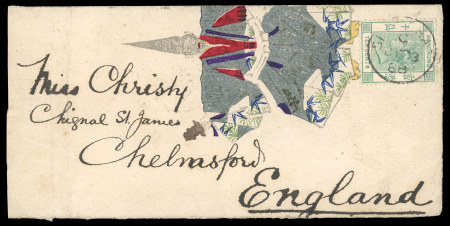 Miss Christy
Chignal St. James
Chelmsford
England